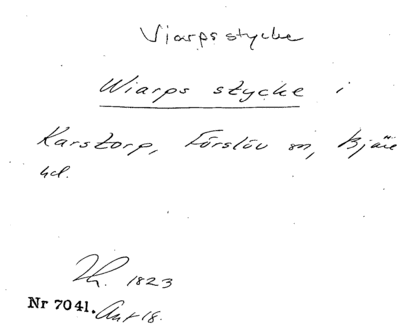 Viarpsstycke
Wiarps stycke i
Karstorp, Förslöv sn, Bjäre
hd.
Th. 1823
Nr 7041. Akt 18.